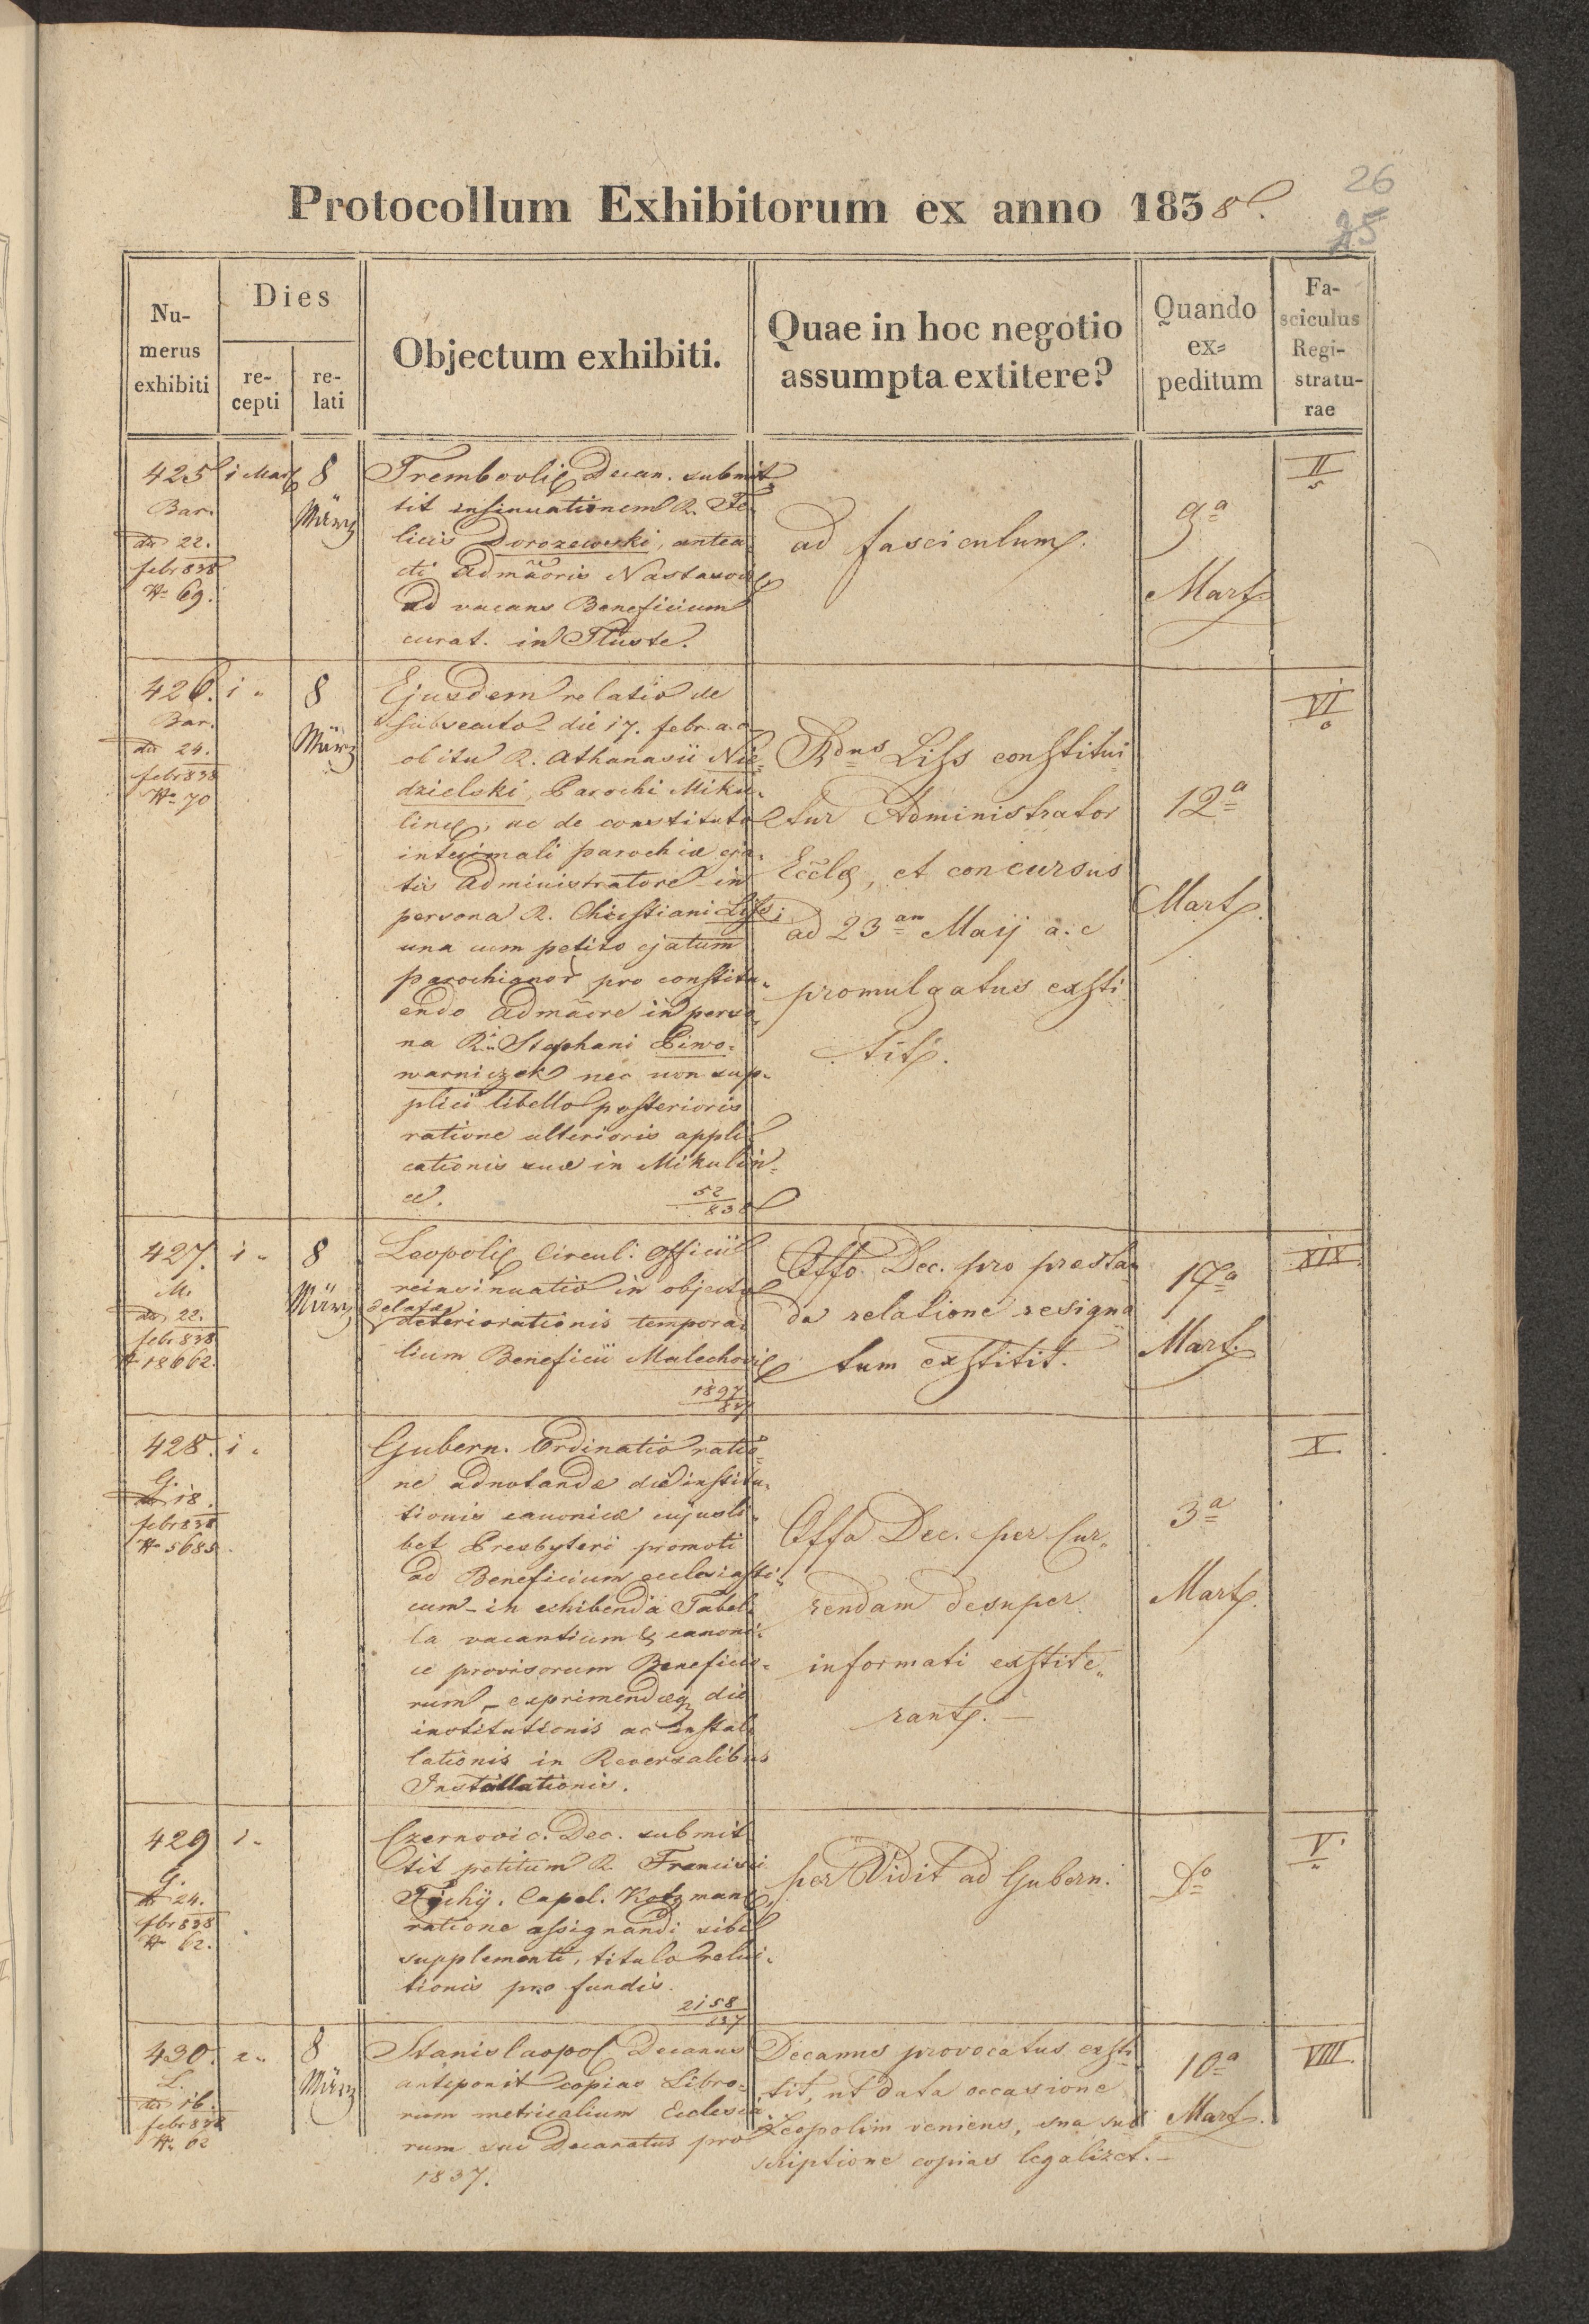 26
25
Protocollum Exhibitorum ex anno 1838.
Nu-
merus
exhibiti
Dies
re-
cepti
re-
lati
Objectum exhibiti.
Quae in hoc negotio
assumpta extitere?
Quando
ex-
peditum
Fa-
sciculus
Regi-
stratu-
rae
425
Bar.
dto 22.
febr 838
N= 69.
1 Mart
8
März
Trembovliæ Decan. submit-
tit insinuationem R. Fe-
licis Dorozewski, antea-
cti Admãoris Nastasoviæ
ad vacans Beneficium
curat. in Tluste.
ad fasciculum.
9a
Mart
II
426.
Bar.
dto 24.
febr 838
N= 70
1 "
8
März
Ejusdem relatio de
subsecuto die 17. febr. a. c.
obitu R. Athanasii Nie-
dzielski, Parochi Miku-
lincæ, ac de constituto
interimali parochiæ eja-
tis Administratore in
persona R. Christiani Liss;
una cum petito ejatum
parochianor pro constitu-
endo Admãore in perso-
na R. Stephani Piwo-
warniczek nec non sup-
plici libello posterioris
ratione ulterioris appli-
cationis suæ in Mikulin-
ce.
52
838
Rdus Liss constitui
tur Administrator
Eccłæ, et concursus
ad 23am Maij a. c
promulgatus exsti
tit.
12a
Mart.
VI
427.
M.
dto 22.
febr 838
N= 18662.
1 "
8
März
Leopoliæ Circul: Officii
reinsinuatio in objecto
delatæ
deteriorationis tempora-
lium Beneficii Malechoviæ
1897
837
Offo Dec. pro præstan
da relatione resigna
tum exstitit.
17a
Mart.
XIX
428.
G.
dto 18.
febr 838
N= 5685.
1 "
Gubern. Ordinatio ratio-
ne adnotandæ diei institu-
tionis canonicæ cujusli-
bet Presbyteri promoti
ad Beneficium ecclesiasti-
cum - in exhibenda Tabel-
la vacantium & canoni-
ce provisorum Beneficio-
rum - exprimendæq die
institutionis ac instal-
lationis in Reversalibus
Installationis.
Offa Dec. per Cur-
rendam desuper
informati exstite-
rant. -
3a
Mart.
X.
429
G.
dto 24.
fbr 838
N= 62.
1 "
Czernovic. Dec. submit-
tit petitum R. Francisci
Tichÿ. Capel. Kotzmanæ,
ratione assignandi sibi
supplementi, titulo relui-
tionis pro fundis.
2158
837
per Vidit ad Gubern.
dto
V.
430.
L.
dto 16.
febr 838
N= 62
2 "
8
März
Stanislaopol Decanus
anteponit copias Libro-
rum metricalium Ecclesia-
rum sui Decanatus pro
1837.
Decanus provocatus exsti
tit, ut data occasione
Leopolim veniens, sua sub
scriptione copias legalizet. -
10a
Mart.
VIII.